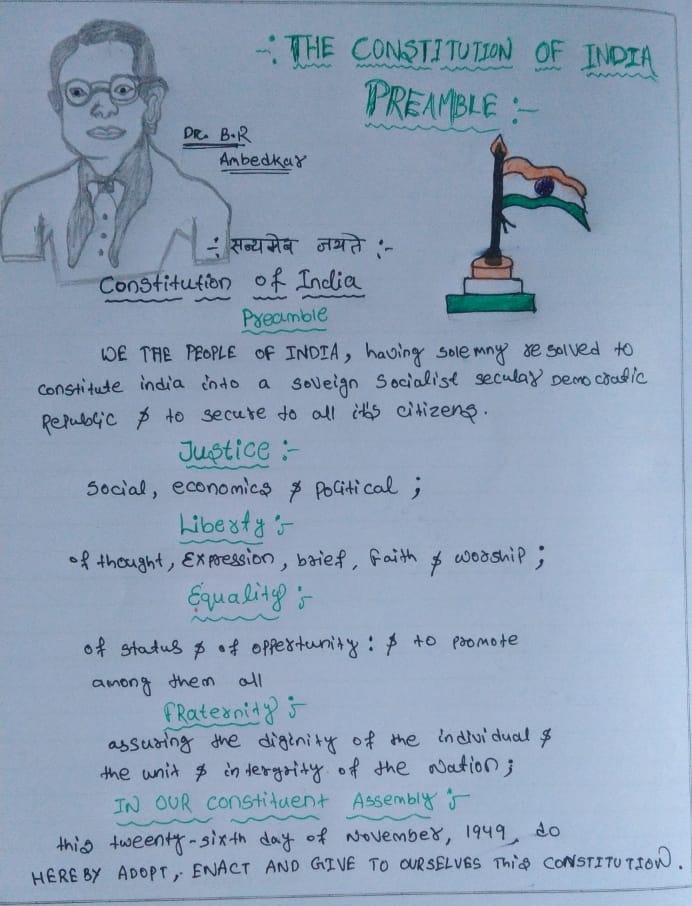 -: THE CONSTITUTION OF INDIA
PREAMBLE :-
Dr. B.R
Ambedkar
÷ सत्यमेव जयते :-
Constitution of India
Preamble
WE THE PEOPLE OF INDIA, having solemny resolved to
constitute india into a soveign Socialist secular Democratic
Republic & to secure to all it's citizens.
Justice :-
Social, economics & political ;
Liberty :-
of thought, Expression, brief, faith & worship ;
Equality :-
of status & of oppertunity : & to promote
among them all
fRaternity :-
assuring the diginity of the individual &
the unit & intergrity of the Nation ;
IN OUR constituent Assembly :-
this tweenty-sixth day of November, 1949, do
HEREBY ADOPT, ENACT AND GIVE TO OURSELVES This CONSTITUTION.